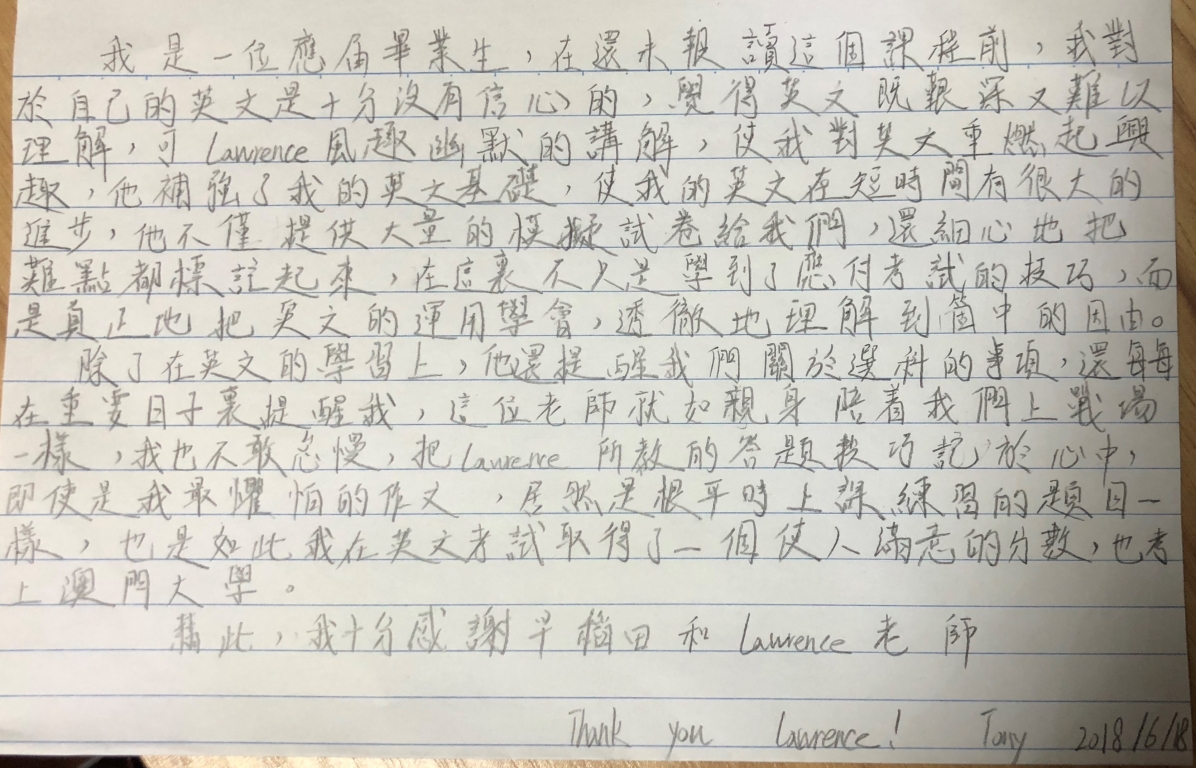 我是一位應届畢業生，在還未報讀這個課程前，我對
於自己的英文是十分沒有信心的，覺得英文既艱深又難以
理解，可Lawrence風趣幽默的講解，使我對英文重燃起興
趣，他補強了我的英文基礎，使我的英文在短時間有很大的
進步，他不僅提供大量的模擬試卷給我們，還細心地把
難點都標註起來，在這裏不只是學到了應付考試的技巧，而
是真正地把英文的運用學會，透徹地理解到箇中的因由。
除了在英文的學習上，他還提醒我們關於選科的事項，還每每
在重要日子裏提醒我，這位老師就如親身陪着我們上戰場
一樣，我也不敢怠慢，把Lawrence所教的答題技巧記於心中，
即使是我最懼怕的作文，居然是根平時上課練習的題目一
樣，也是如此我在英文考試取得了一個使人滿意的分數，也考
上澳門大學。
藉此，我十分感謝早稻田和Lawrence老師
Thank you Lawrence! Tony 2018/6/18